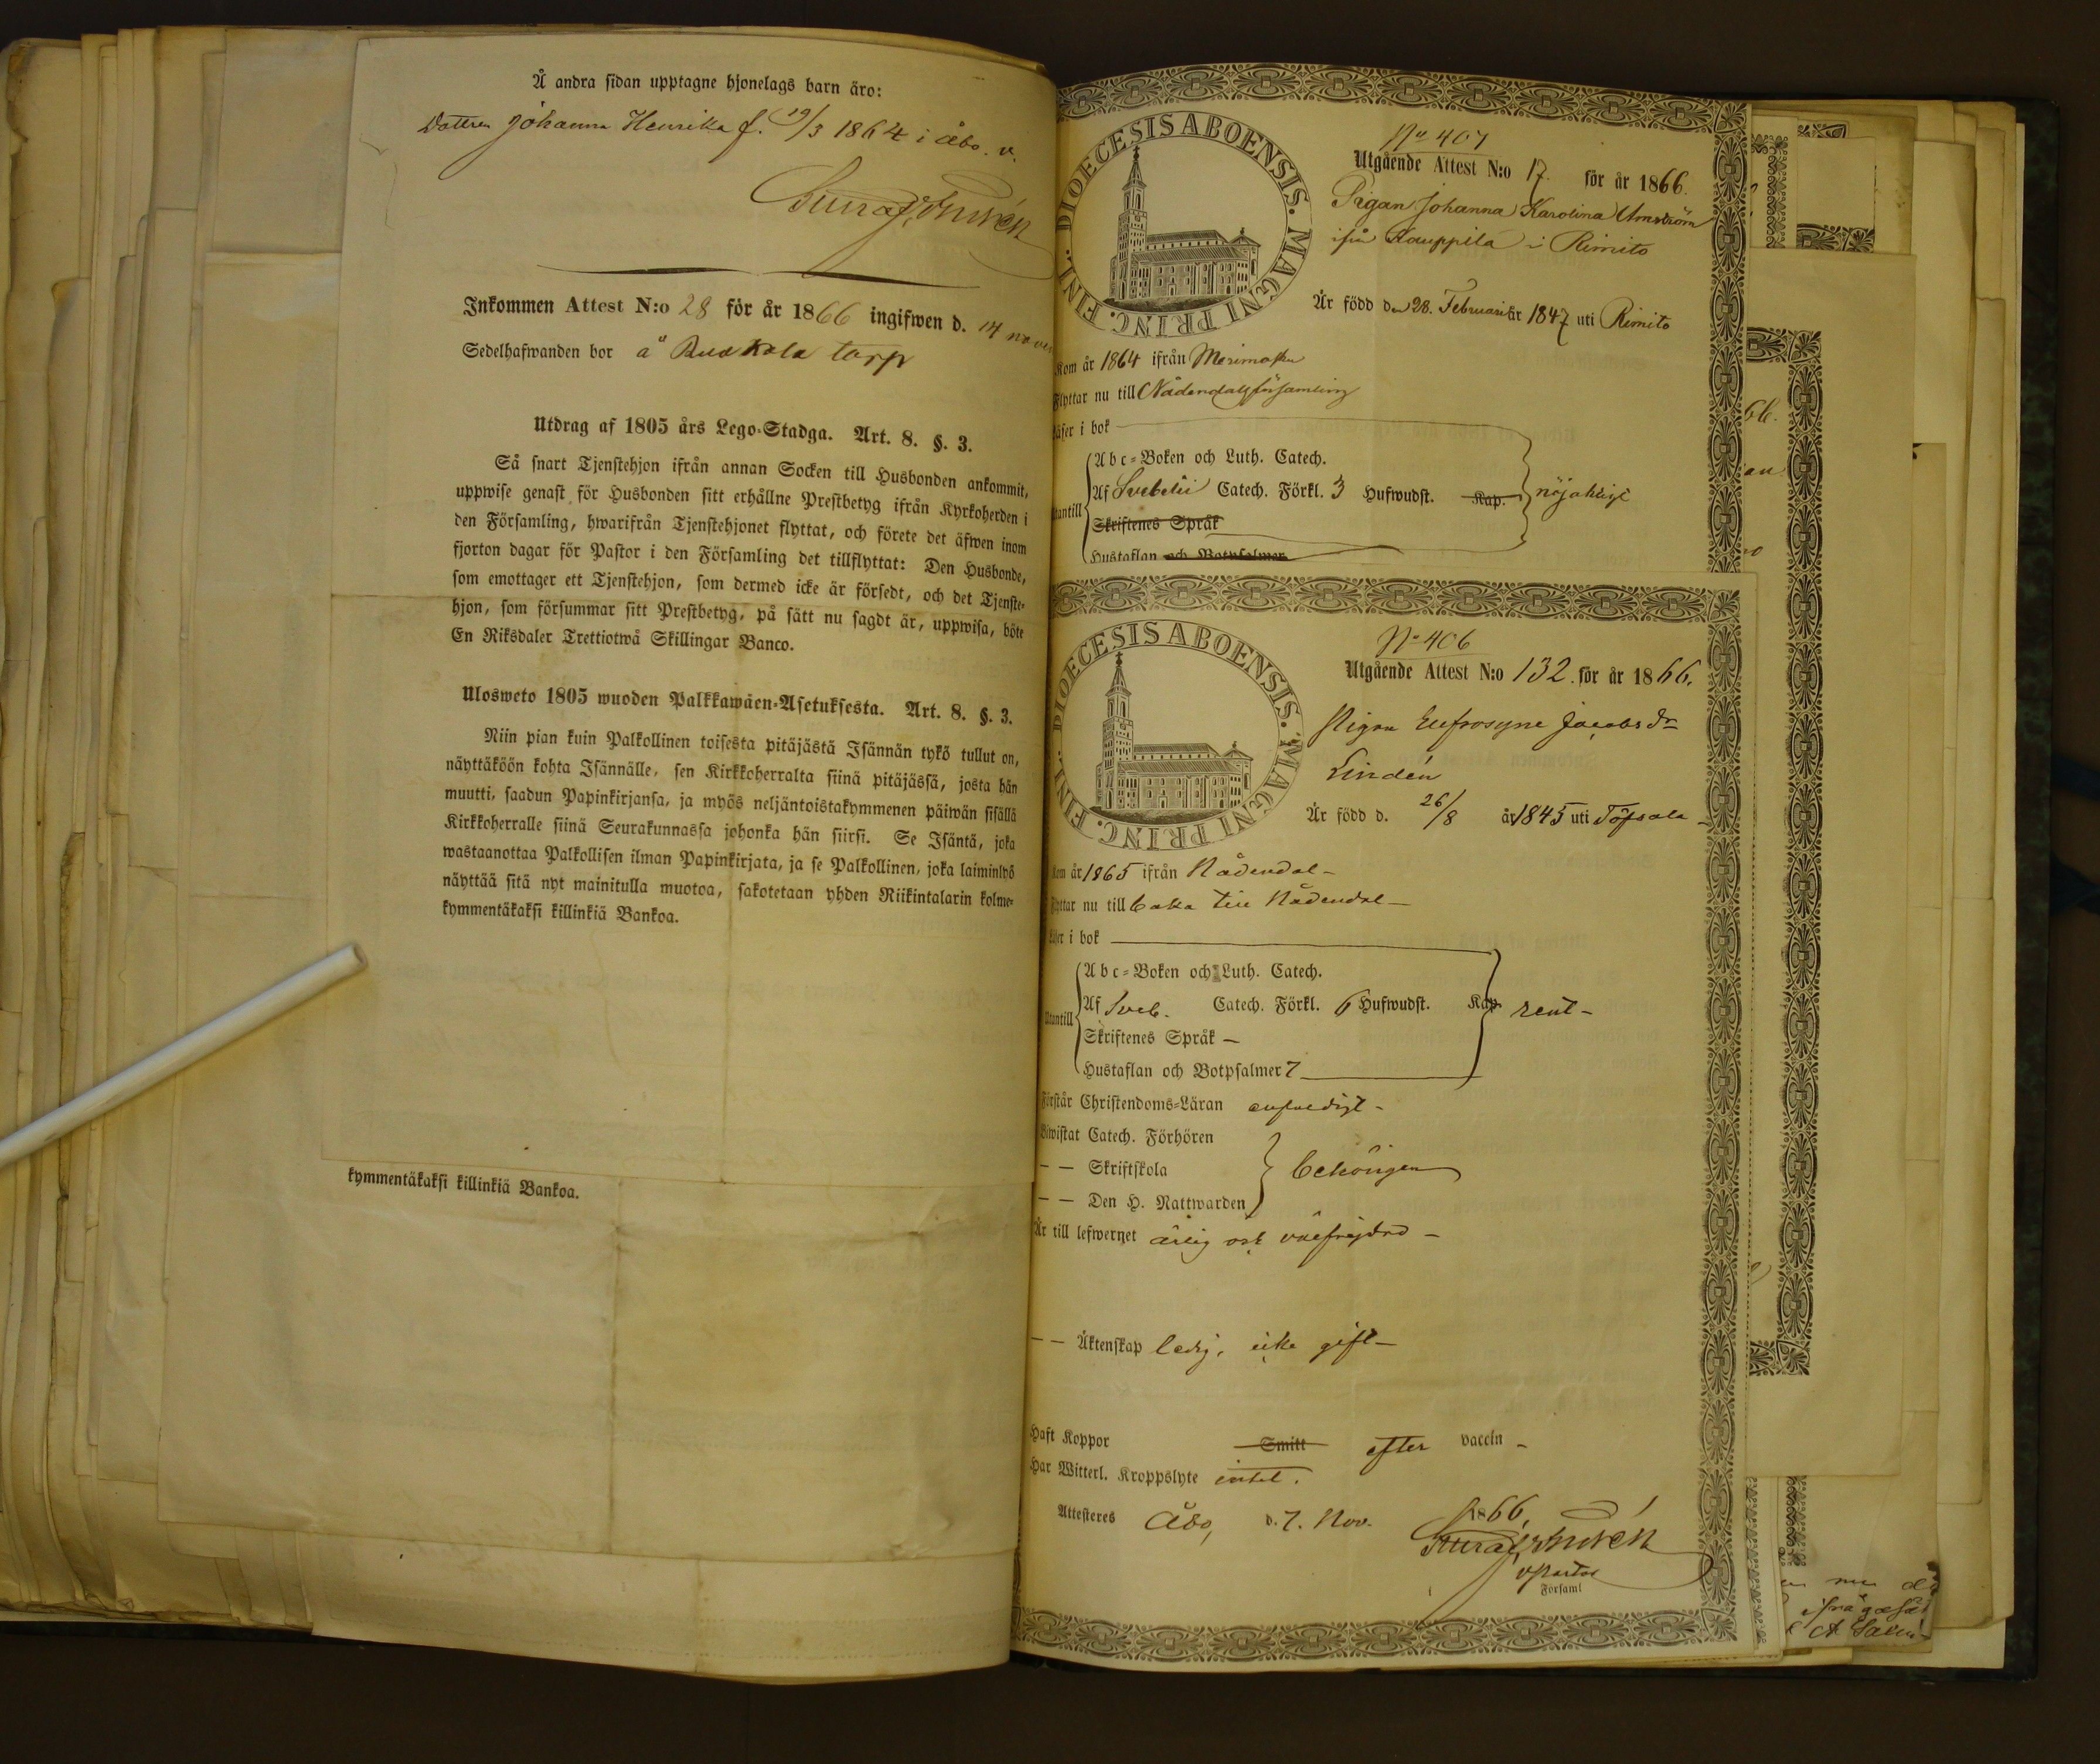 Å andra sidan upptagne hjonelags barn äro:
Dottren Johanna Henrika f. 19/3 1864 i Åbo. v.
Inkommen Attest N:o 28 för år 1866 ingifwen d. 14 nov
Sedelhafwanden bor å torp
Utdrag af 1805 års Lego-Stadga. Art. 8. §. 3.
Så snart Tjenstehjon ifrån annan Socken till Husbonden ankommit,
uppwise genast för Husbonden sitt erhållne Prestbetyg ifrån Kyrkoherden i
den Församling, hwarifrån Tjenstehjonet flyttat, och förete det äfwen inom
fjorton dagar för Pastor i den Församling det tillflyttat: Den Husbonde,
som emottager ett Tjenstehjon, som dermed icke är försedt, och det Tjenste-
hjon, som försummar sitt Prestbetyg, på sätt nu sagdt är, uppwisa, böte
En Riksdaler Trettiotwå Skillingar Banco.
Ulosweto 1805 wuoden Palkkawäen-Asetuksesta. Art. 8. §. 3.
Niin pian kuin Palkollinen toisesta pitäjästä Isännän tykö tullut on,
näyttäköön kohta Isännälle, sen Kirkkoherralta siinä pitäjässä, josta hän
muutti, saadun Papinkirjansa, ja myös neljäntoistakymmenen päiwän sisällä
Kirkkoherralle siinä Seurakunnassa johonka hän siirsi. Se Isäntä, joka
wastaanottaa Palkollisen ilman Papinkirjata, ja se Palkollinen, joka laiminlyö
näyttää sitä nyt mainitulla muotoa, sakotetaan yhden Riikintalarin kolme-
kymmentäkaksi killinkiä Bankoa.
kymmentäkaksi killinkiä Bankoa.
DIOECESIS ABOENSIS. MAGNI PRINC. FINL.
No 407
Utgående Attest N:o 17. för år 1866.
Pigan Johanna Karolina Arnström
ifrån Kauppila i Rimito
Är född den 28. Februari år 1847 uti Rimito
Kom år 1864 ifrån Merimasku
Flyttar nu till Nådendals församling
Läser i bok
Abc-Boken och Luth. Catech.
Utantill Af Svebelii Catech. Förkl. 3 Hufwudst. Kap. nöjaktigt
Skriftenes Språk
Hustaflan och Botpsalmer
DIOECESIS ABOENSIS. MAGNI PRINC. FINL.
No 406
Utgående Attest N:o 132. för år 1866.
Pigan Eufrosyne Jacobs dr
Lindén
Är född d. 26/8 år 1845 uti Töfsala
Kom år 1865 ifrån Nådendal
Flyttar nu till baka till Nådendal
Läser i bok
Abc-Boken och Luth. Catech.
Utantill Af Sveb. Catech. Förkl. 6 Hufwudst. Kap. rent
Skriftenes Språk
Hustaflan och Botpsalmer 7
Förstår Christendoms-Läran enfaldigt
Bewistat Catech. Förhören
— — Skriftskola behörigen
— — Den H. Nattwarden
Är till lefwernet ärlig och välfrejdad
— — Äktenskap ledig, icke gift
Haft Koppor Smitt efter vaccin
Har Witterl. Kroppslyte intet.
Attesteres Åbo, d. 7. Nov. 1866,
v Pastor
Församl